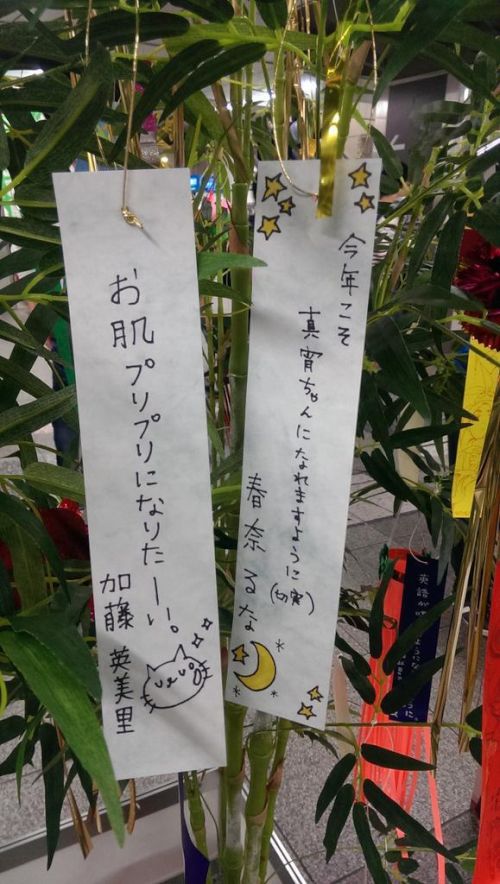 今年こそ
真宵ちゃんになれますように
(切実)
春奈るな
お肌プリプリになりたーい。
加藤 英美里
英語が